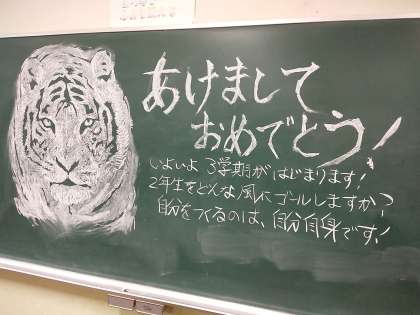 あけまして
おめでとう!
いよいよ3学期がはじまります!
2年生をどんな風にゴールしますか?
自分をつくるのは、自分自身です!